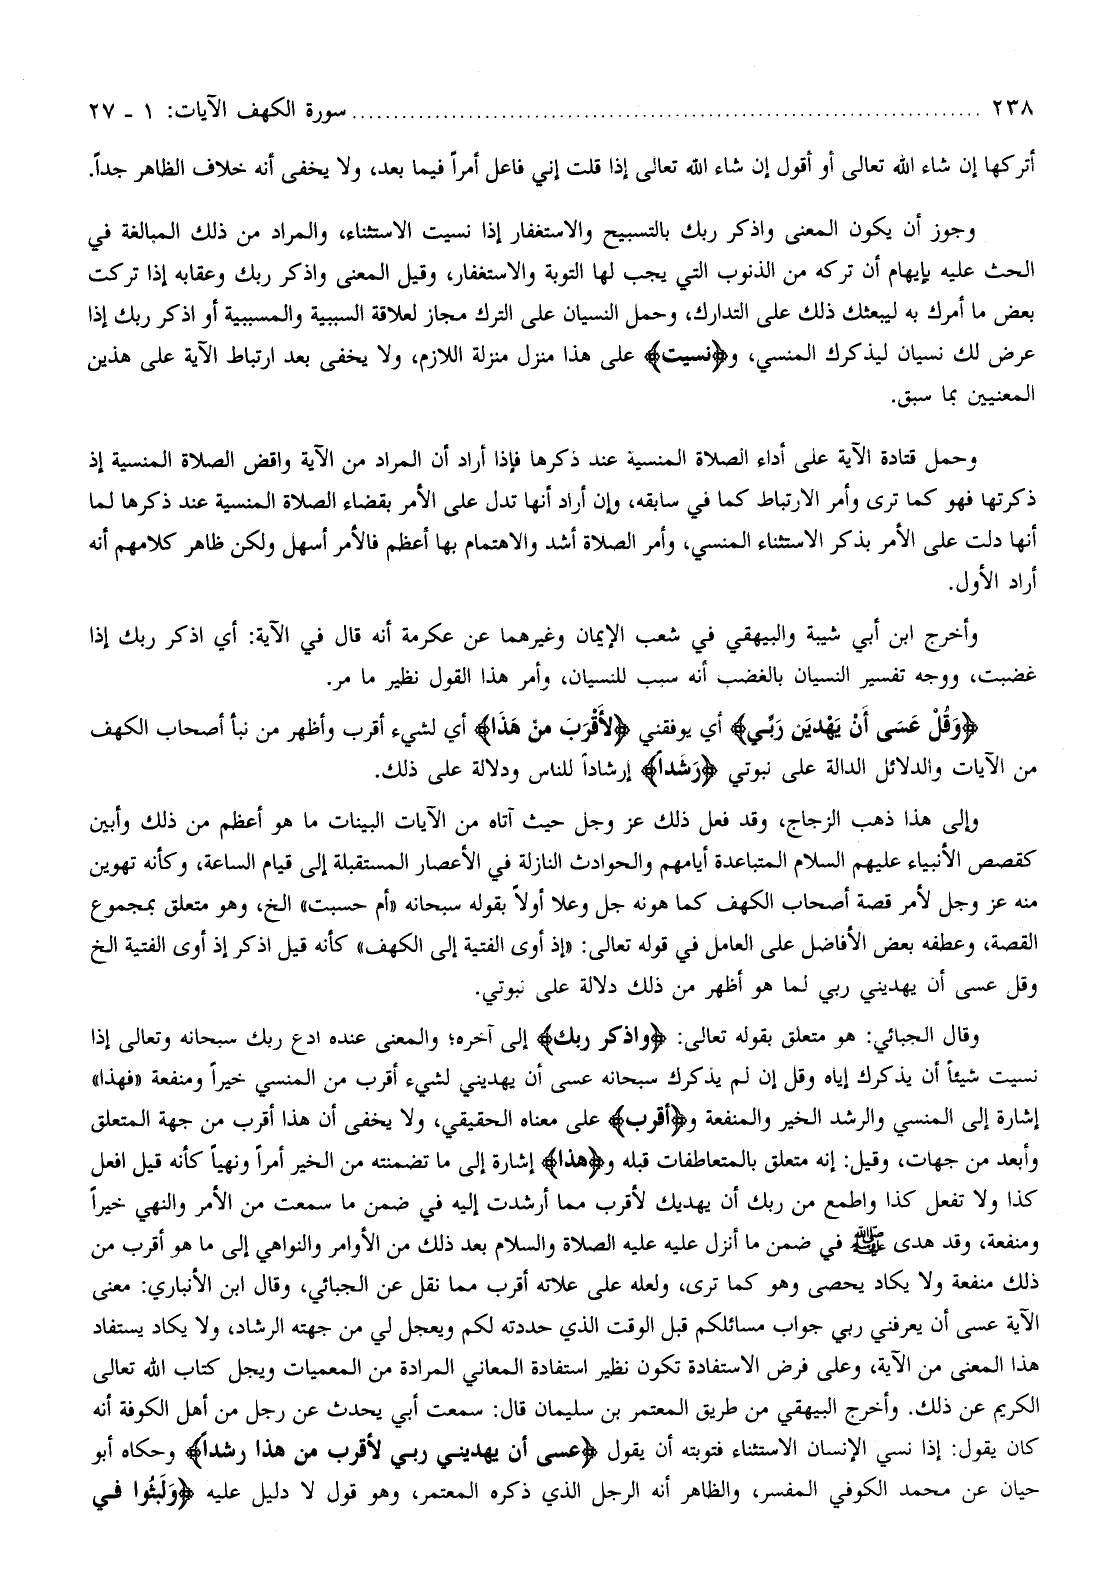 ٢٣٨ ........................................................................ سورة الكهف الآيات: ١ - ٢٧
أتركها إن شاء الله تعالى أو أقول إن شاء الله تعالى إذا قلت إني فاعل أمراً فيما بعد، ولا يخفى أنه خلاف الظاهر جداً.
وجوز أن يكون المعنى واذكر ربك بالتسبيح والاستغفار إذا نسيت الاستثناء، والمراد من ذلك المبالغة في
الحث عليه بإيهام أن تركه من الذنوب التي يجب لها التوبة والاستغفار، وقيل المعنى واذكر ربك وعقابه إذا تركت
بعض ما أمرك به ليبعثك ذلك على التدارك، وحمل النسيان على الترك مجاز لعلاقة السببية والمسببية أو اذكر ربك إذا
عرض لك نسيان ليذكرك المنسي، و﴿نسيت﴾ على هذا منزل منزلة اللازم، ولا يخفى بعد ارتباط الآية على هذين
المعنيين بما سبق.
وحمل قتادة الآية على أداء الصلاة المنسية عند ذكرها فإذا أراد أن المراد من الآية واقض الصلاة المنسية إذ
ذكرتها فهو كما ترى وأمر الارتباط كما في سابقه، وإن أراد أنها تدل على الأمر بقضاء الصلاة المنسية عند ذكرها لما
أنها دلت على الأمر بذكر الاستثناء المنسي، وأمر الصلاة أشد والاهتمام بها أعظم فالأمر أسهل ولكن ظاهر كلامهم أنه
أراد الأول.
وأخرج ابن أبي شيبة والبيهقي في شعب الإيمان وغيرهما عن عكرمة أنه قال في الآية: أي اذكر ربك إذا
غضبت، ووجه تفسير النسيان بالغضب أنه سبب للنسيان، وأمر هذا القول نظير ما مر.
﴿وَقُلْ عَسَى أَنْ يَهْدِيَن رَبِّي﴾ أي يوفقني ﴿لأَقْرَبَ منْ هَذَا﴾ أي لشيء أقرب وأظهر من نبأ أصحاب الكهف
من الآيات والدلائل الدالة على نبوتي ﴿رَشَداً﴾ إرشاداً للناس ودلالة على ذلك.
وإلى هذا ذهب الزجاج، وقد فعل ذلك عز وجل حيث آتاه من الآيات البينات ما هو أعظم من ذلك وأبين
كقصص الأنبياء عليهم السلام المتباعدة أيامهم والحوادث النازلة في الأعصار المستقبلة إلى قيام الساعة، وكأنه تهوين
منه عز وجل لأمر قصة أصحاب الكهف كما هونه جل وعلا أولاً بقوله سبحانه «أم حسبت» الخ، وهو متعلق بمجموع
القصة، وعطفه بعض الأفاضل على العامل في قوله تعالى: «إذ أوى الفتية إلى الكهف» كأنه قيل اذكر إذ أوى الفتية الخ
وقل عسى أن يهديني ربي لما هو أظهر من ذلك دلالة على نبوتي.
وقال الجبائي: هو متعلق بقوله تعالى: ﴿واذكر ربك﴾ إلى آخره؛ والمعنى عنده ادع ربك سبحانه وتعالى إذا
نسيت شيئاً أن يذكرك إياه وقل إن لم يذكرك سبحانه عسى أن يهديني لشيء أقرب من المنسي خيراً ومنفعة «فهذا»
إشارة إلى المنسي والرشد الخير والمنفعة و﴿أقرب﴾ على معناه الحقيقي، ولا يخفى أن هذا أقرب من جهة المتعلق
وأبعد من جهات، وقيل: إنه متعلق بالمتعاطفات قبله و﴿هذا﴾ إشارة إلى ما تضمنته من الخير أمراً ونهياً كأنه قيل افعل
كذا ولا تفعل كذا واطمع من ربك أن يهديك لأقرب مما أرشدت إليه في ضمن ما سمعت من الأمر والنهي خيراً
ومنفعة، وقد هدى ﷺ في ضمن ما أنزل عليه عليه الصلاة والسلام بعد ذلك من الأوامر والنواهي إلى ما هو أقرب من
ذلك منفعة ولا يكاد يحصى وهو كما ترى، ولعله على علاته أقرب مما نقل عن الجبائي، وقال ابن الأنباري: معنى
الآية عسى أن يعرفني ربي جواب مسائلكم قبل الوقت الذي حددته لكم ويعجل لي من جهته الرشاد، ولا يكاد يستفاد
هذا المعنى من الآية، وعلى فرض الاستفادة تكون نظير استفادة المعاني المرادة من المعميات ويجل كتاب الله تعالى
الكريم عن ذلك. وأخرج البيهقي من طريق المعتمر بن سليمان قال: سمعت أبي يحدث عن رجل من أهل الكوفة أنه
كان يقول: إذا نسي الإنسان الاستثناء فتوبته أن يقول ﴿عسى أن يهديني ربي لأقرب من هذا رشداً﴾ وحكاه أبو
حيان عن محمد الكوفي المفسر، والظاهر أنه الرجل الذي ذكره المعتمر، وهو قول لا دليل عليه ﴿وَلَبثُوا في